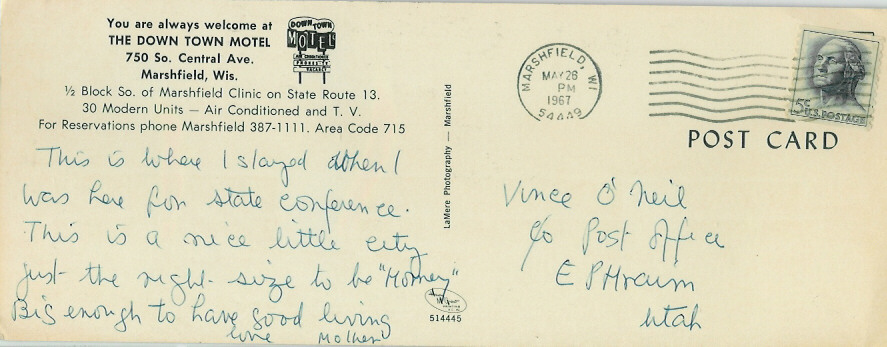 You are always welcome at
THE DOWN TOWN MOTEL
750 So. Central Ave.
Marshfield, Wis.
DOWN TOWN
MOTEL
AIR CONDITIONED
VACANCY
½ Block So. of Marshfield Clinic on State Route 13.
30 Modern Units — Air Conditioned and T. V.
For Reservations phone Marshfield 387-1111. Area Code 715
This is where I stayed when I
was here for state conference.
This is a nice little city
just the right size to be "Homey"
Big enough to have good living
love Mother
LaMere Photography — Marshfield
514445
MARSHFIELD, WI
MAY 26
PM
1967
54449
5c
U.S. POSTAGE
POST CARD
Vince O'Neil
c/o Post Office
EPHraim
Utah